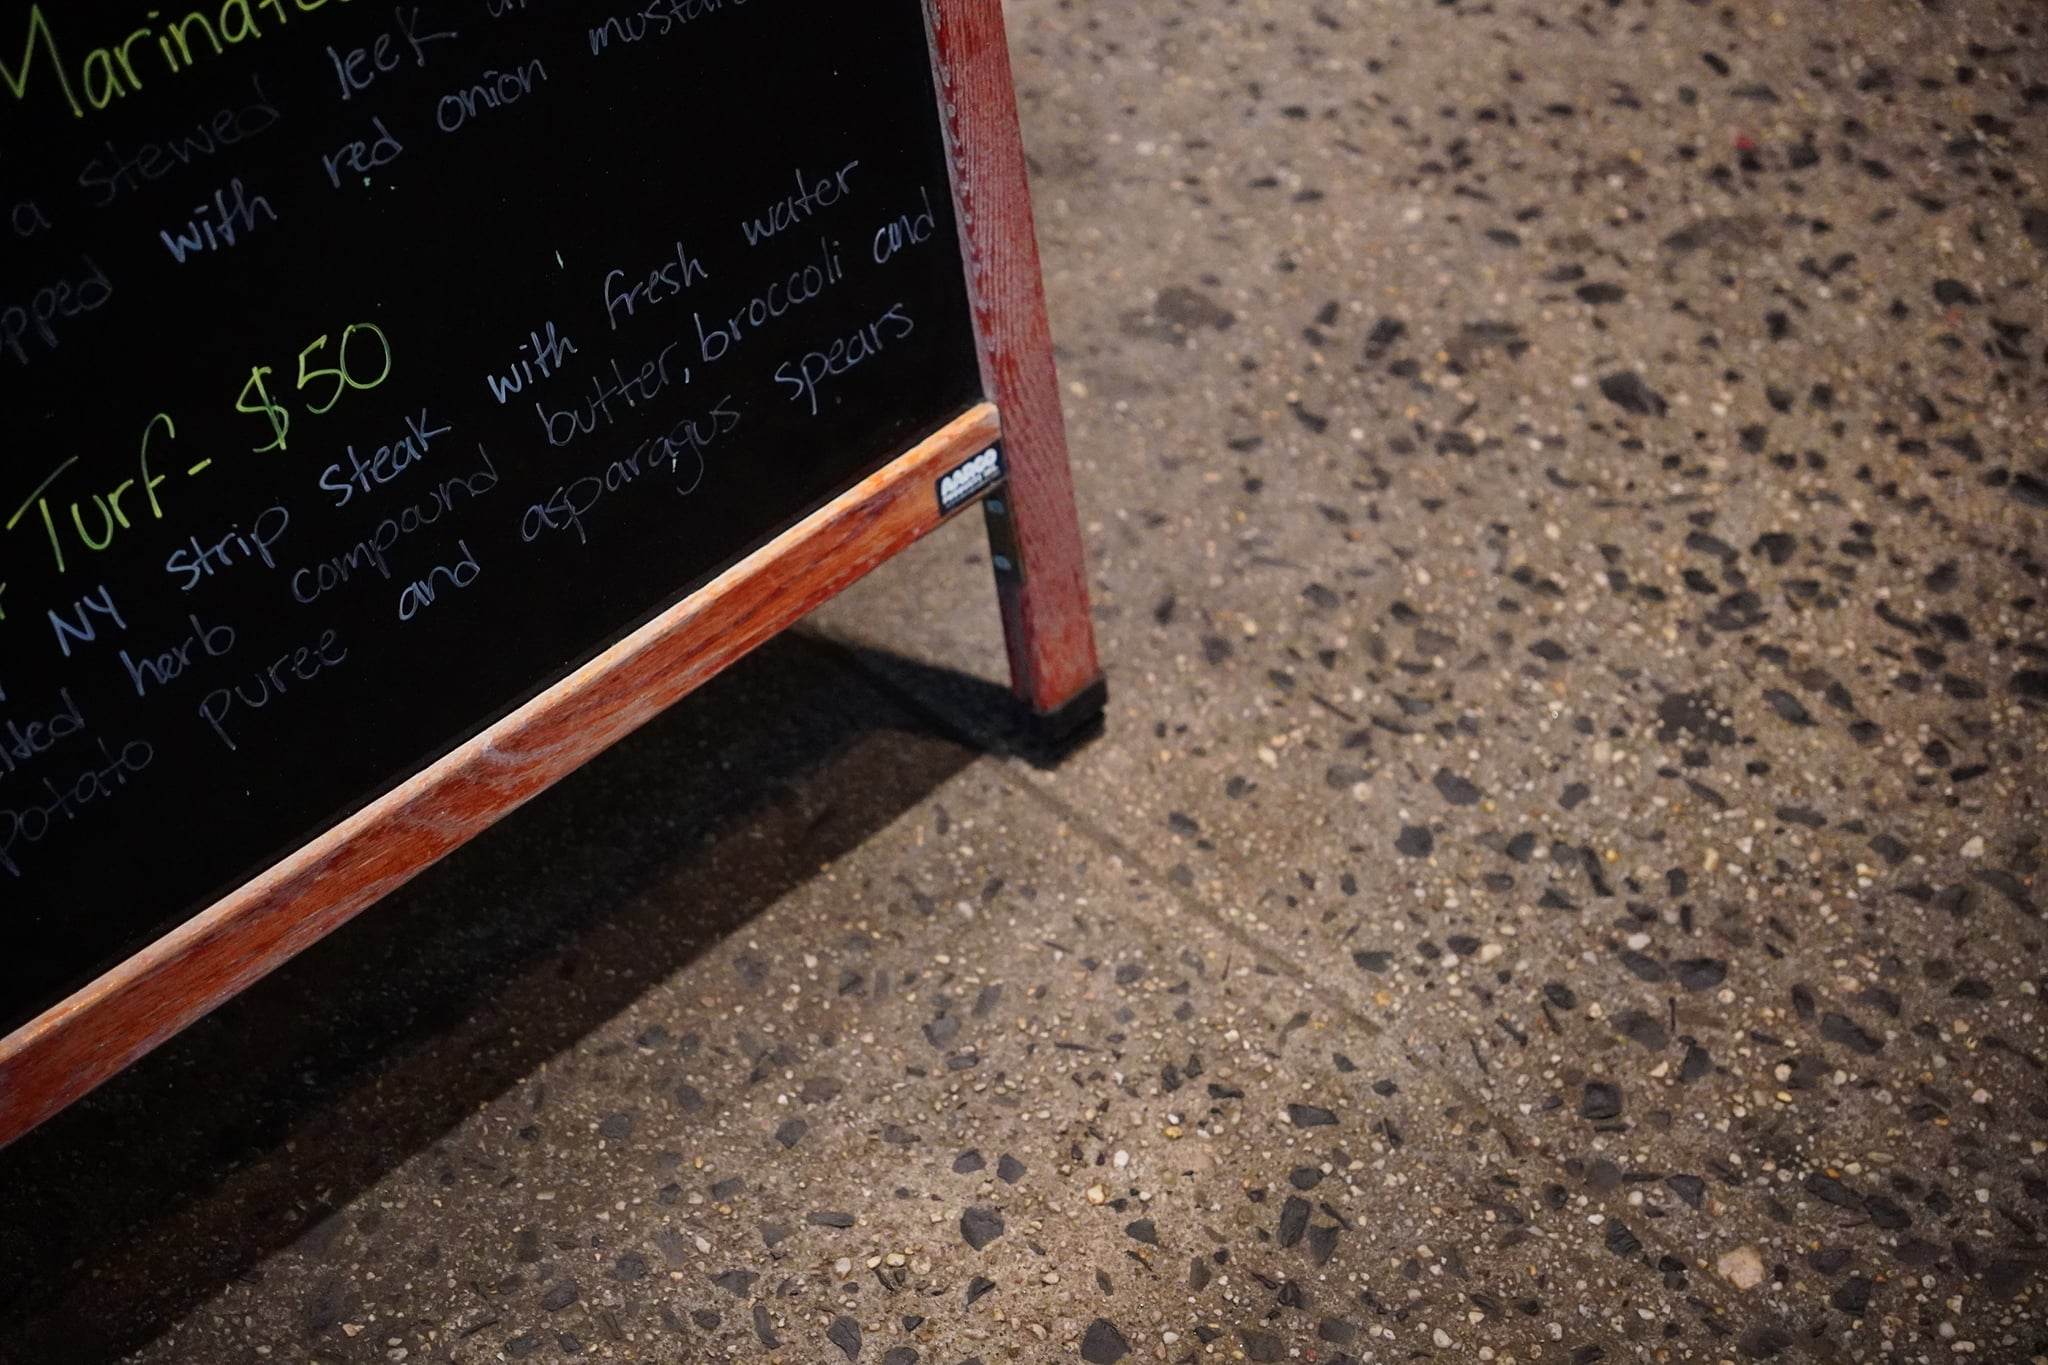 Marinate
a stewed leek
with red onion mustar
Turf - $50
NY strip steak with fresh water
herb compound butter, broccoli and
potato puree and asparagus spears
AARCO